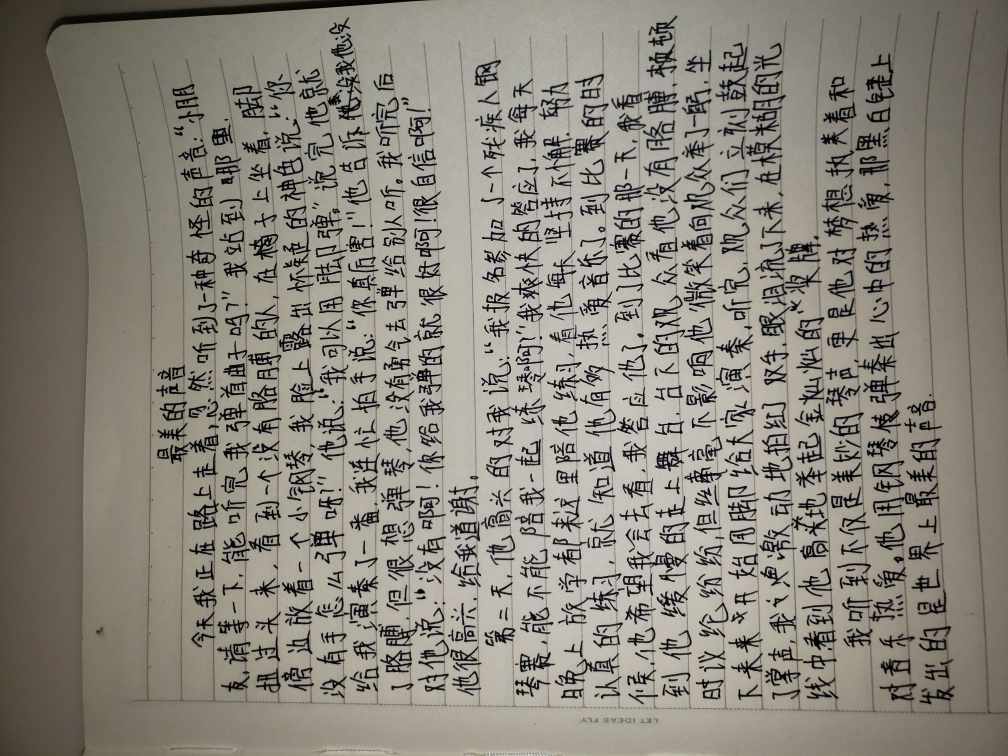 最美的声音
今天我正在路上走着,忽然听到了一种奇怪的声音:“小朋
友,请等一下,能听完我弹首曲子吗?”我站到哪里,
扭过头来,看到一个没有胳膊的人,在椅子上坐着,脚
傍边放着一个小钢琴,我脸上露出怀疑的神色说:“你
没有手,怎么弹呀!”他说:“我可以用脚弹,”说完他就
给我演奏了一番,我连忙拍手说:“你真厉害!”他告诉我他没
了胳膊,但很想弹琴,他没有勇气去弹给别人听。我听完后
对他说:“没有啊!你给我弹的就很好啊!很自信啊!”
他很高兴,给我道谢。
第二天,他高兴的对我说:“我报名参加了一个残疾人钢
琴赛,能不能陪我一起练琴啊!”我爽快的答应了,我每天
晚上放学都来这里陪他练习,看他每天坚持不懈,努力
认真的练习,就知道他有多热爱音乐了。到比赛的时
候,他希望我会去看,我答应他了,到了比赛的那一天,我看
到他缓慢的走上舞台,台下的观众看他没有胳膊,顿顿
时议纶纷纷,但丝毫不影响他,他微笑着向观众举了一躬,坐
下来来开始用脚给大家演奏,听完,观众们立刻鼓起
了掌声,我也激动地拍红双手,眼泪流了下来,在模糊的光
线中看到他高兴地举起金灿灿的“奖牌,
我听到不仅是美妙的琴声更是他对梦想执着和
对音乐热爱。他用钢琴使弹奏出心中的热爱,那黑白键上
发出的是世界上最美的声音.
LET IDEAS FLY